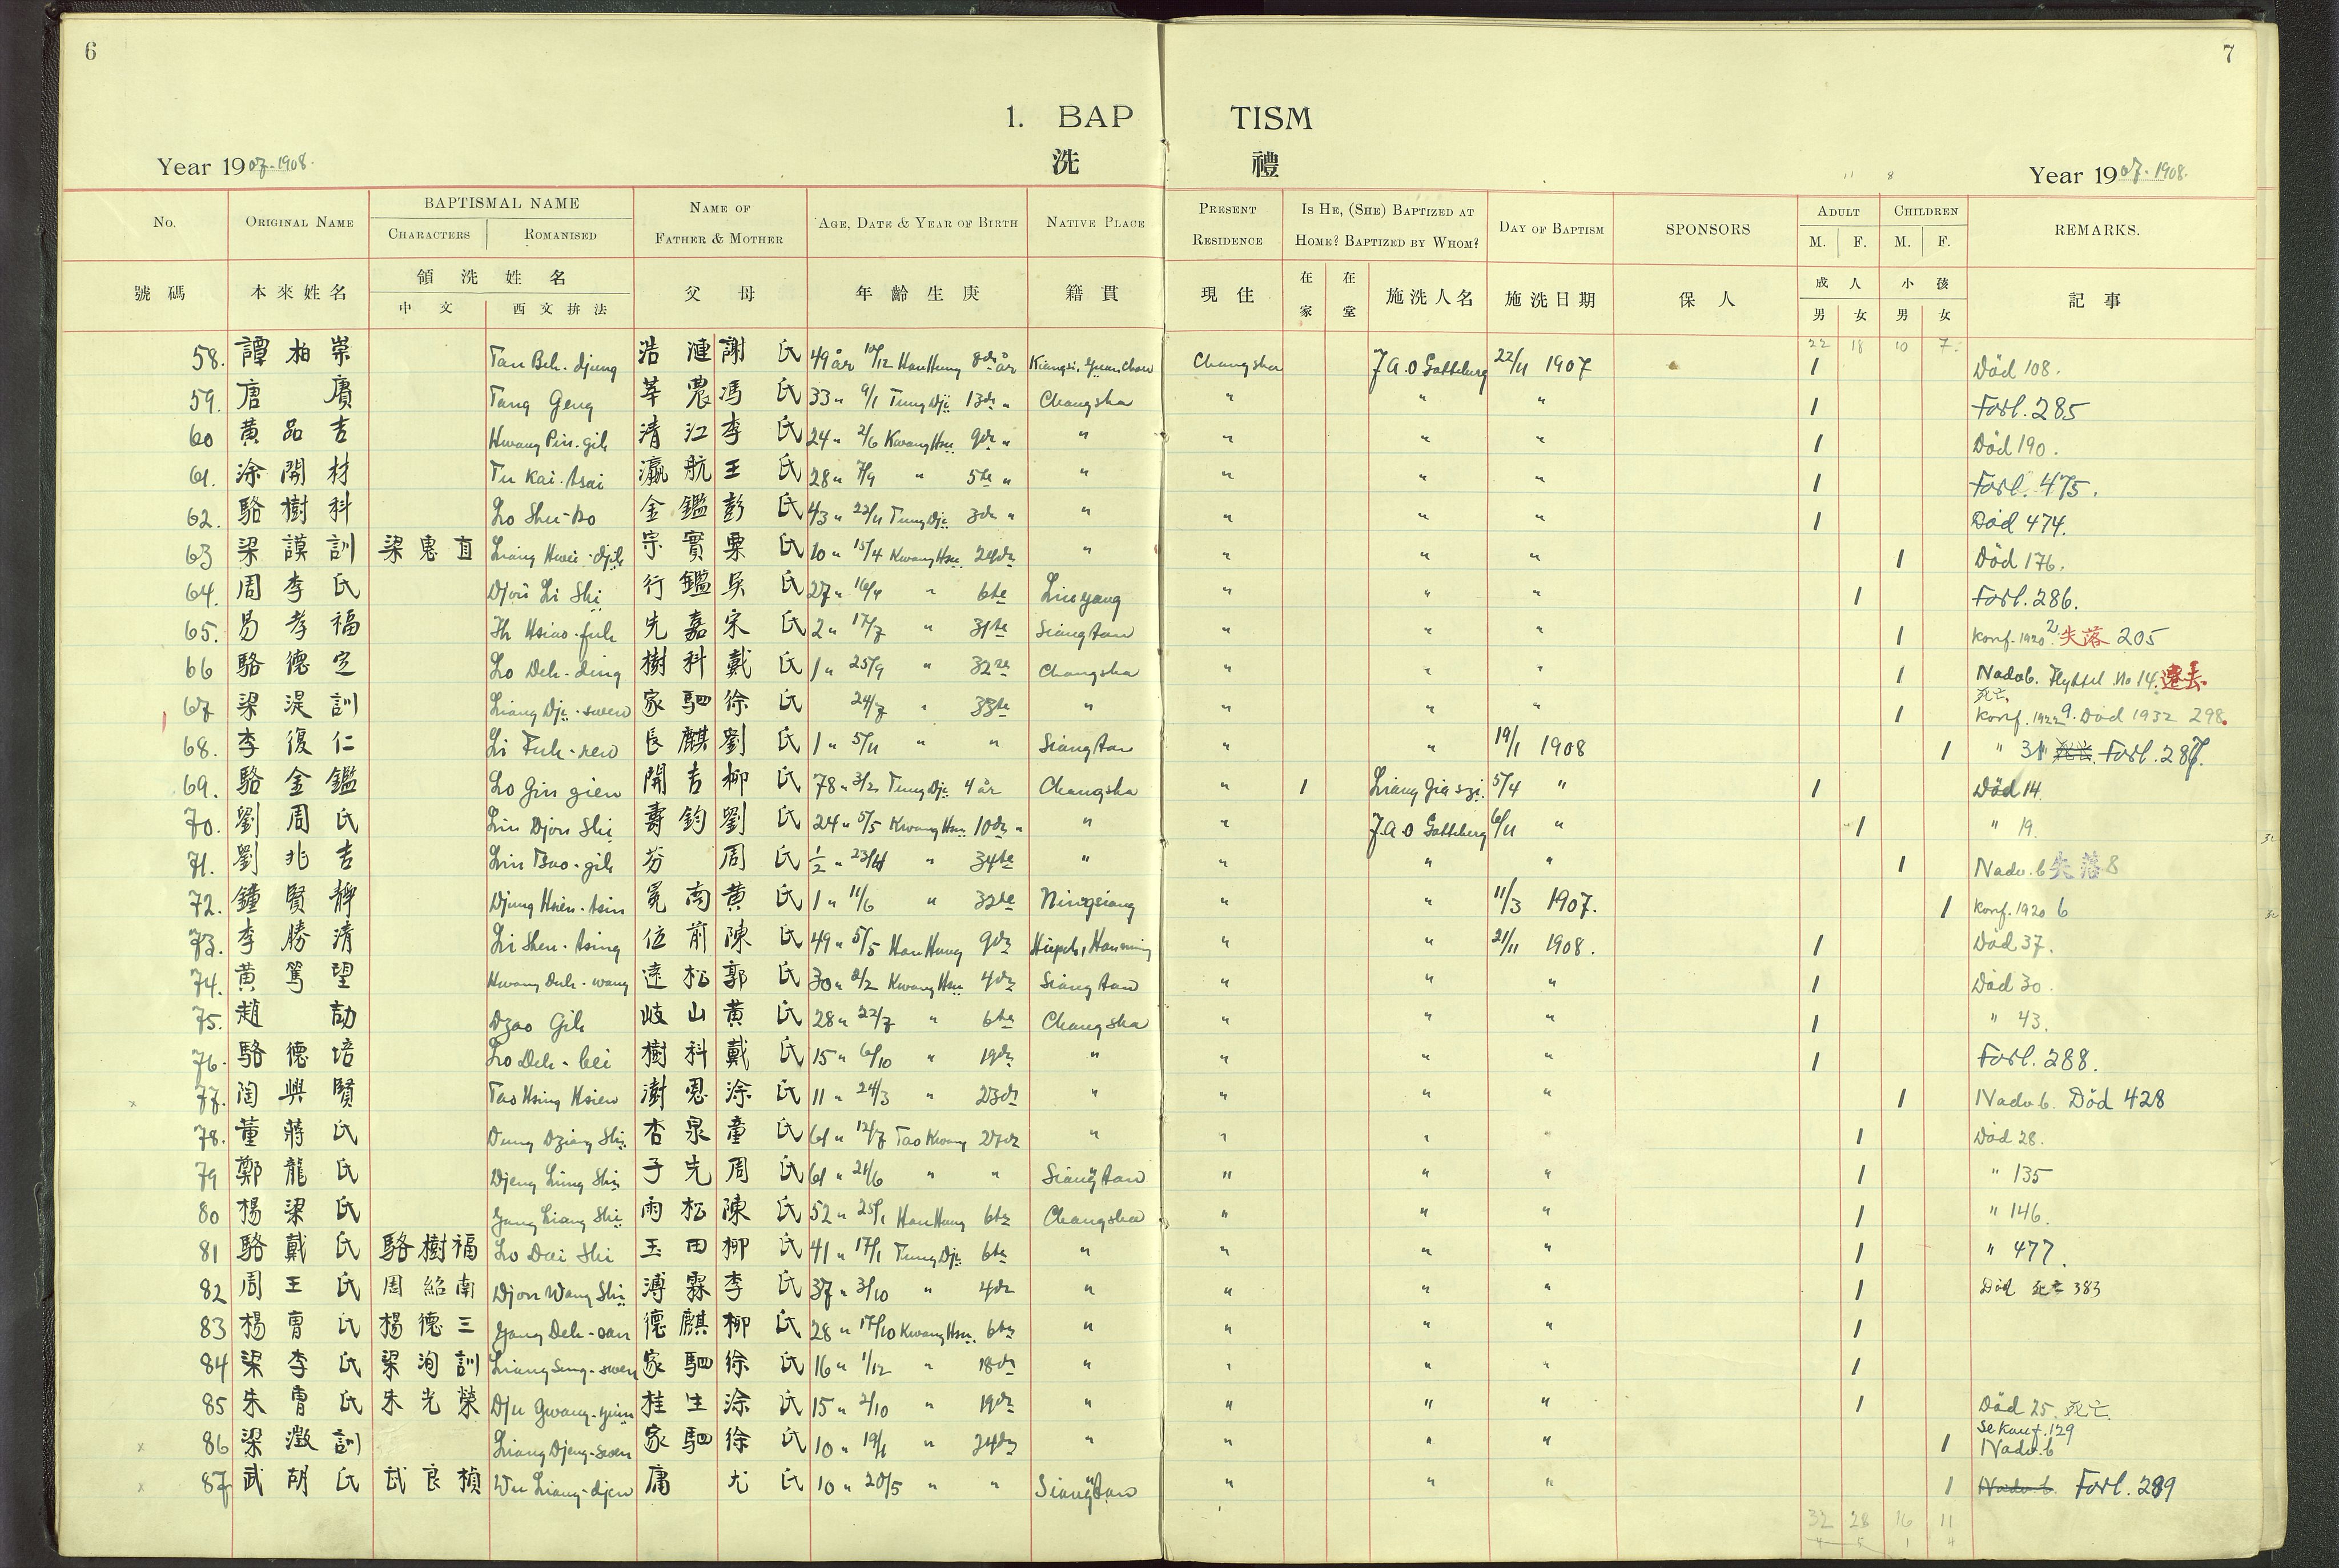 6
7
1. BAP TISM
洗 禮
Year 1907-1908.
Year 1907-1908.
No. ORIGINAL NAME BAPTISMAL NAME NAME OF FATHER & MOTHER AGE, DATE & YEAR OF BIRTH NATIVE PLACE PRESENT RESIDENCE IS HE, (SHE) BAPTIZED AT HOME? BAPTIZED BY WHOM? DAY OF BAPTISM SPONSORS ADULT CHILDREN REMARKS.
CHARACTERS ROMANISED M. F. M. F.
號碼 本來姓名 領洗姓名 父母 年齡生庚 籍貫 現住 在家 在堂 施洗人名 施洗日期 保人 成人 小孩 記事
中文 西文拼法 男 女 男 女
22 18 10 7
58. 譚柏崇 Tan Beh-djung 浩漣 謝氏 49 år 10/12 Han Hung 8de år Kiangsi, Yuanchow Changsha J.A.O Gottberg 22/11 1907 1 Död 108.
59. 唐賡 Tang Geng 莘農 馮氏 33 " 9/1 Tung Dji 13de " Changsha " " " 1 Forl. 285
60 黃品吉 Hwang Pin-gih 清江 李氏 24 " 2/6 Kwang Hsu 9de " " " " " 1 Död 190.
61. 涂開材 Tu Kai-tsai 瀛航 王氏 28 " 7/9 " 5te " " " " " 1 Forl. 475.
62. 駱樹科 Lo Shu-ko 金鑑 彭氏 43 " 22/11 Tung Dji 3de " " " " " 1 Död 474.
63 梁謨訓 梁惠直 Liang Hwei-djih 宗實 栗氏 10 " 15/4 Kwang Hsu 24de " " " " 1 Död 176.
64. 周李氏 Djou Li Shi 行鑑 吳氏 27 " 16/4 " 6te Liuyang " " " 1 Forl. 286.
65. 易孝福 Ih Hsiao-fuh 先嘉 宋氏 2 " 17/7 " 31te Siangtan " " " 1 Konf. 1920 2 失落 205
66 駱德定 Lo Deh-ding 樹科 戴氏 1 " 25/9 " 32re Changsha " " " 1 Nadvb. Flyttel No 14. 遷去
67 梁湜訓 Liang Dji-swen 家駟 徐氏 24/7 " 33te " " " " 1 死亡 Konf. 1922 9. Död 1932 298.
68. 李復仁 Li Fuh-ren 長麒 劉氏 1 " 5/11 " " Siangtan " " 19/1 1908 1 " 31 Forl. 287.
69. 駱金鑑 Lo Gin gien 開吉 柳氏 78 " 3/2 Tung Dji 4 år Changsha " 1 Liang Gia szi. 5/4 " 1 Död 14.
70. 劉周氏 Liu Djou Shi 壽鈞 劉氏 24 " 5/5 Kwang Hsu 10de " " " J.A.O Gottberg 6/11 " 1 " 19.
71. 劉兆吉 Liu Tsao-gih 芬 周氏 ½ " 23/4 " 34te " " " " 1 Nadv.b 失落 8
72. 鍾賢靜 Djung Hsien-tsin 冕南 黃氏 1 " 11/6 " 32te Ningsiang " " 11/3 1907. 1 Konf. 1920 6
73. 李勝清 Li Shen-tsing 位前 陳氏 49 " 5/5 Han Hung 9de " " 21/11 1908. 1 Död 37.
74. 黃篤望 Hwang Duh-wang 遠松 郭氏 30 " 2/2 Kwang Hsu 4de Siangtan " " " 1 Död 30.
75. 趙劼 Dzao Gih 岐山 黃氏 28 " 22/7 " 6te Changsha " " " 1 " 43.
76. 駱德培 Lo Deh-bei 樹科 戴氏 15 " 6/10 " 19de " " " " 1 Forl. 288.
77. 陶興賢 Tao Hsing Hsien 澍恩 涂氏 11 " 24/3 " 23de " " " " 1 Nadv.b. Död 428
78. 董蔣氏 Dung Dziang Shi 杏泉 童氏 61 " 12/7 Tao Kwang 27de " " " " 1 Död 28.
79 鄭龍氏 Djeng Lung Shi 子先 周氏 61 " 21/6 " " Siangtan " " " 1 " 135
80 楊梁氏 Yang Liang Shi 雨松 陳氏 52 " 25/1 Han Hung 6te Changsha " " " 1 " 146.
81 駱戴氏 駱樹福 Lo Dai Shi 玉田 柳氏 41 " 17/1 Tung Dji 6te " " " " 1 " 477.
82 周王氏 周紹南 Djou Wang Shi 溥霖 李氏 37 " 3/10 " 4de " " " " 1 Död 死亡 383
83 楊曹氏 楊德三 Yang Deh-san 德麒 柳氏 28 " 17/10 Kwang Hsu. 6te " " " " 1
84 梁李氏 梁洵訓 Liang Sung-swen 家駟 徐氏 16 " 1/12 " 18de " " " " 1
85 朱曹氏 朱光榮 Dju Gwang-yuin 桂生 涂氏 15 " 2/10 " 19de " " " " 1 Död 25. 死亡
86 梁澂訓 Liang Djeng-swen 家駟 徐氏 10 " 19/1 " 24de " " " " 1 Se Konf. 129 Nadv.b
87 武胡氏 武良楨 Wu Liang-djen 庸 尤氏 10 " 20/5 " " Siangtan " " " 1 Nadv.b. Forl. 289
32 28 16 11